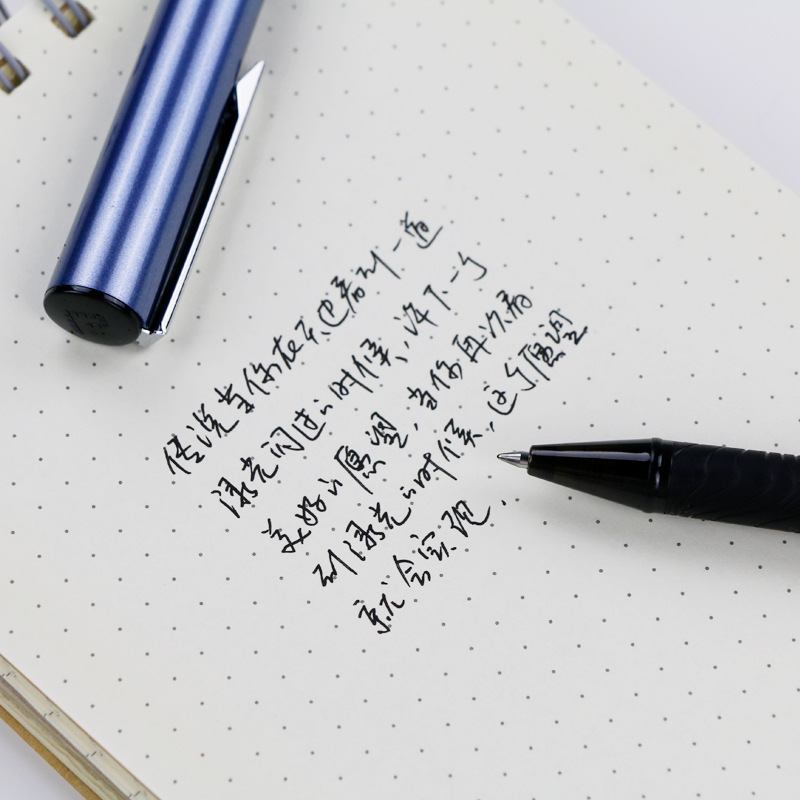 传说当你在天边看到一道
绿光闪过的时候，许下一个
美好的愿望，当你再次看
到绿光的时候，这个愿望
就会实现，